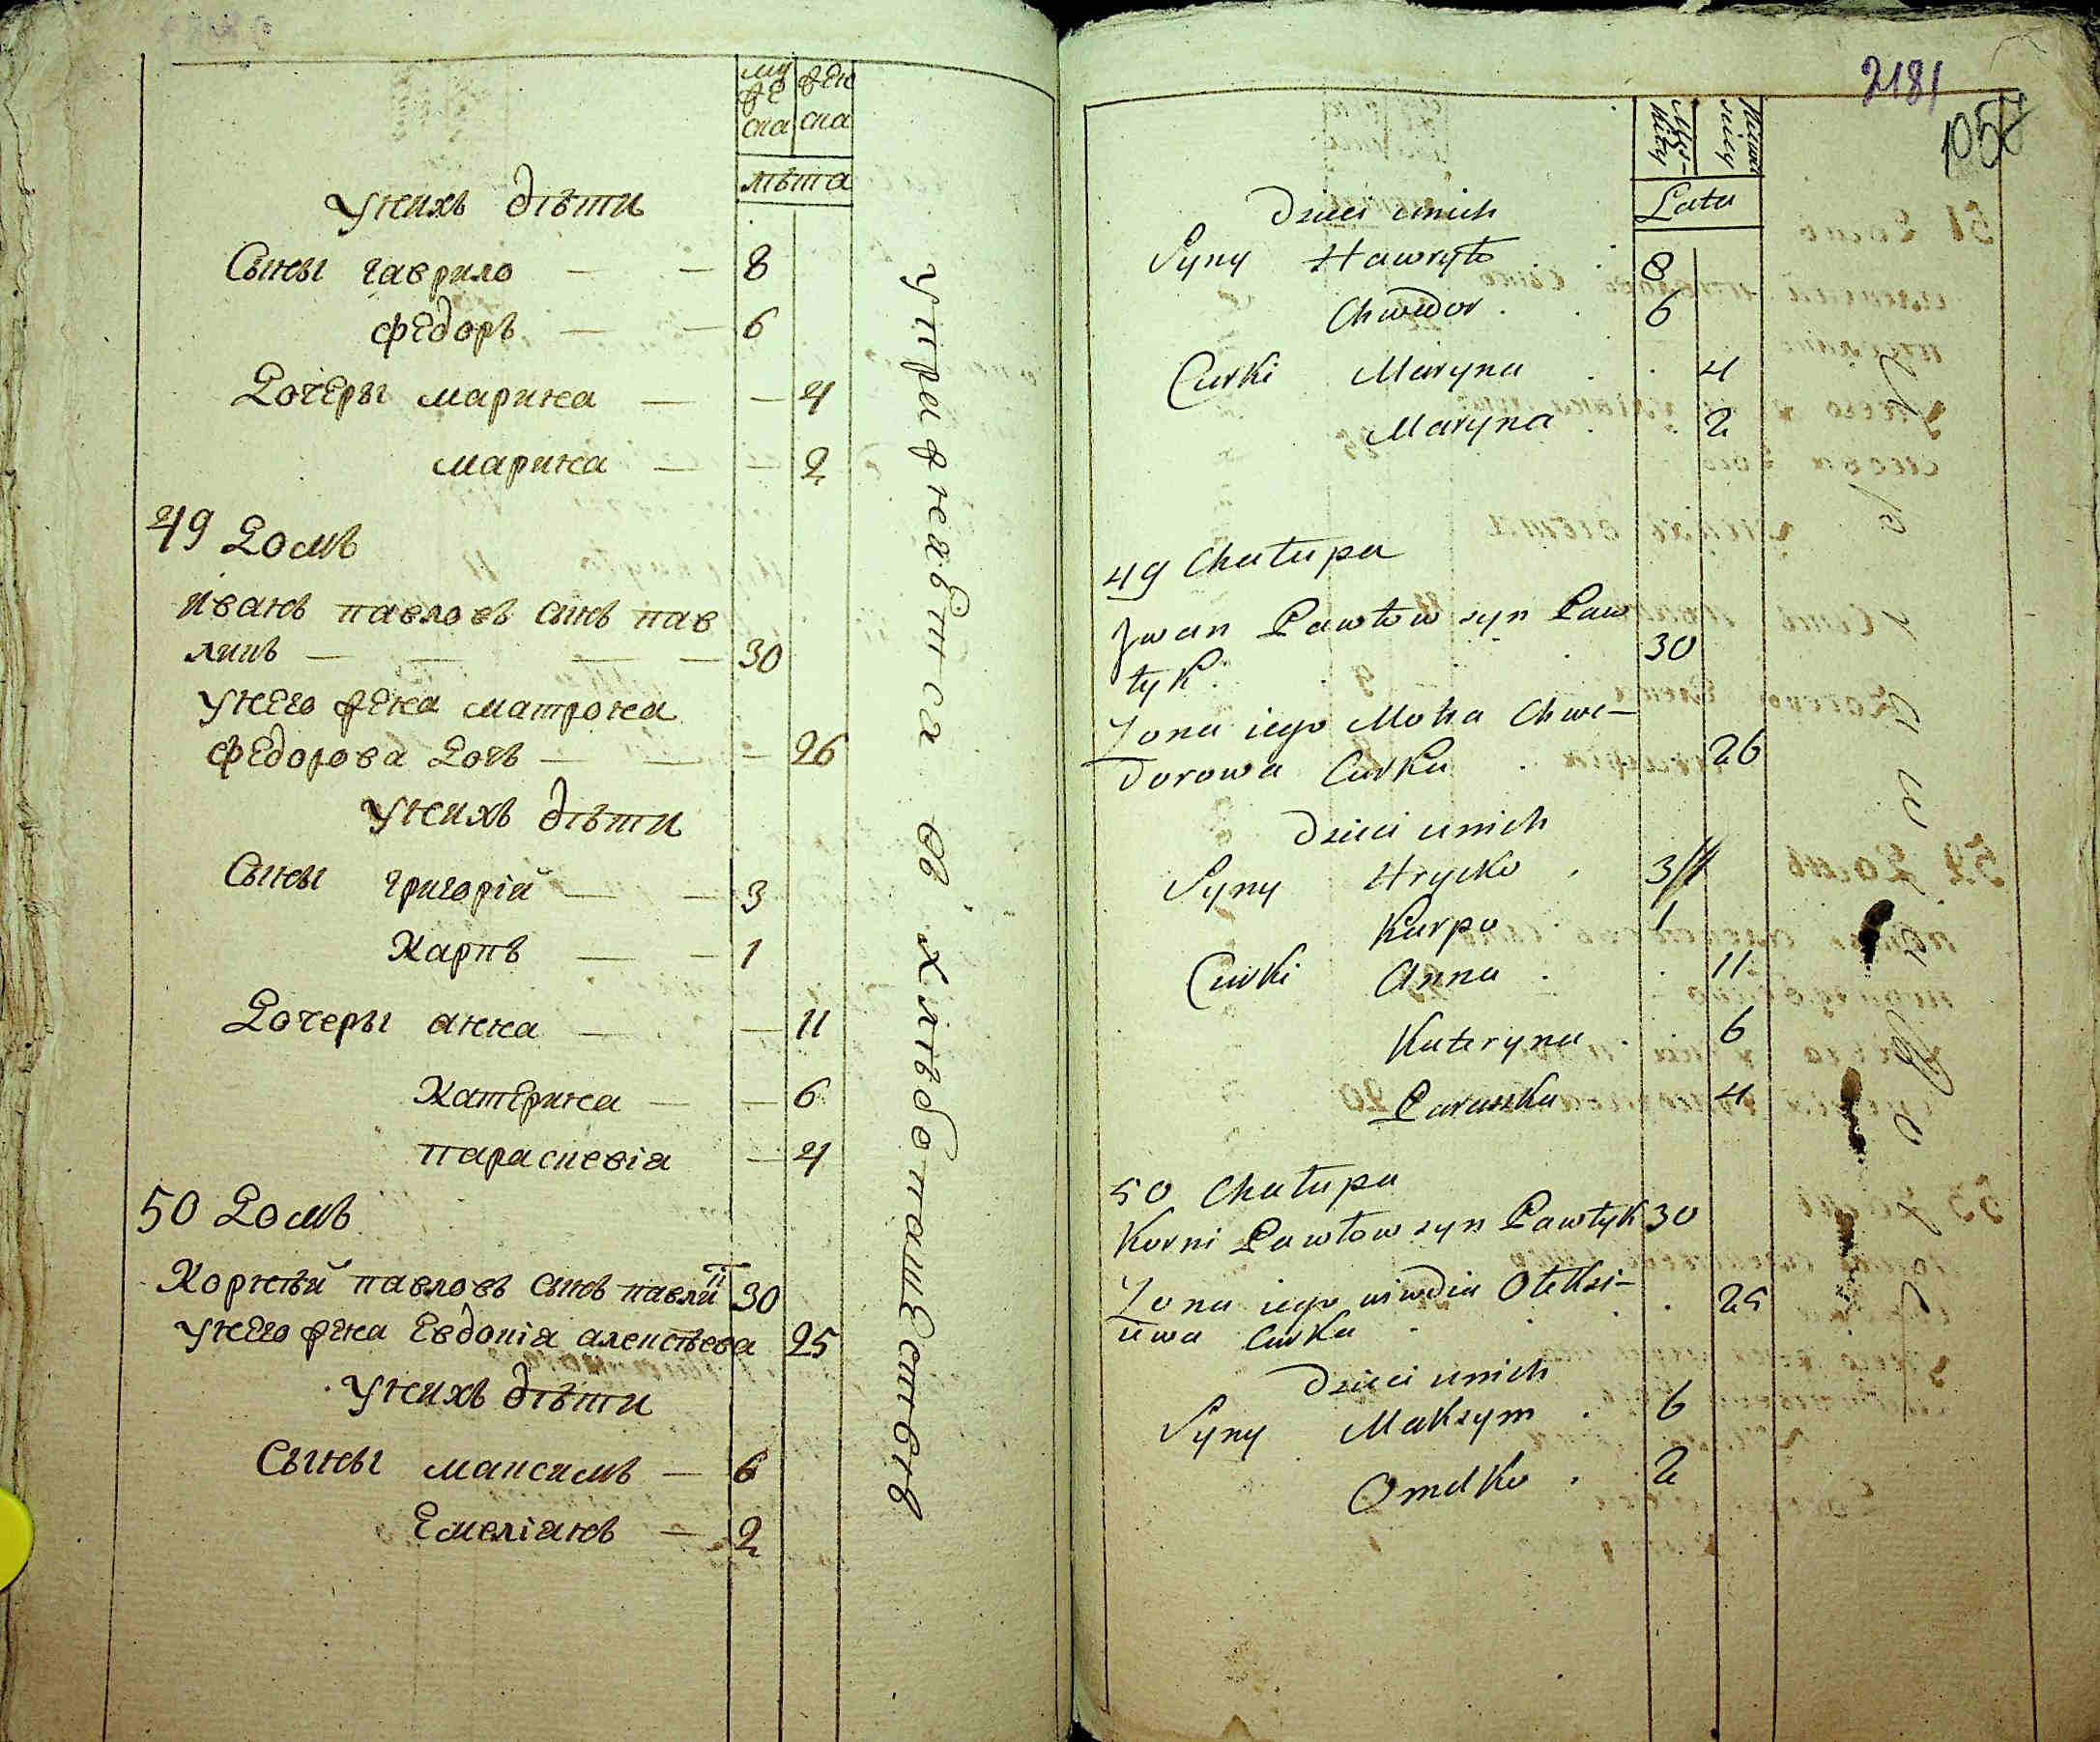 муже ска
женс ска
лѣта
у них дѣти
Сыны гаврило — — 8
Федоръ — — 6
Дочеры марина — — 4
марина — — 2
49 Домъ
Иванъ павловъ сынъ пав
ликъ — — — — 30
у него жена матрона
Федорова дочь — — — 26
у нихъ дѣти
Сыны григорій — — 3
Карпъ — — 1
Дочеры анна — — 11
Катерина — — 6
параскевія — 4
50 Домъ
Корнѣй павловъ сынъ павли 30
у него жена Евдокія алексѣева 25
у нихъ дѣти
Сыны максимъ — 6
Емеліанъ — 2
упражнается въ хлѣбопашествѣ
2181
1057
Lata
Dzieci u nich
Syny Hawryło . . 8
Chwedor . . 6
Curki Maryna . . 4
Maryna . . 2
49 Chałupa
Jwan Pawłow syn Paw
łyk . . . 30
Żona iego Motra Chwe-
dorowa Curka . 26
Dzieci u nich
Syny Hrycko . 3
Karpo . 1
Curki Anna . . 11
Kateryna . . 6
Paraska 4
50 Chałupa
Korni Pawłow syn Pawłyk 30
Żona iego Oleksi-
iwa Curka . . . 25
Dzieci u nich
Syny Maksym . 6
Omelko . 2